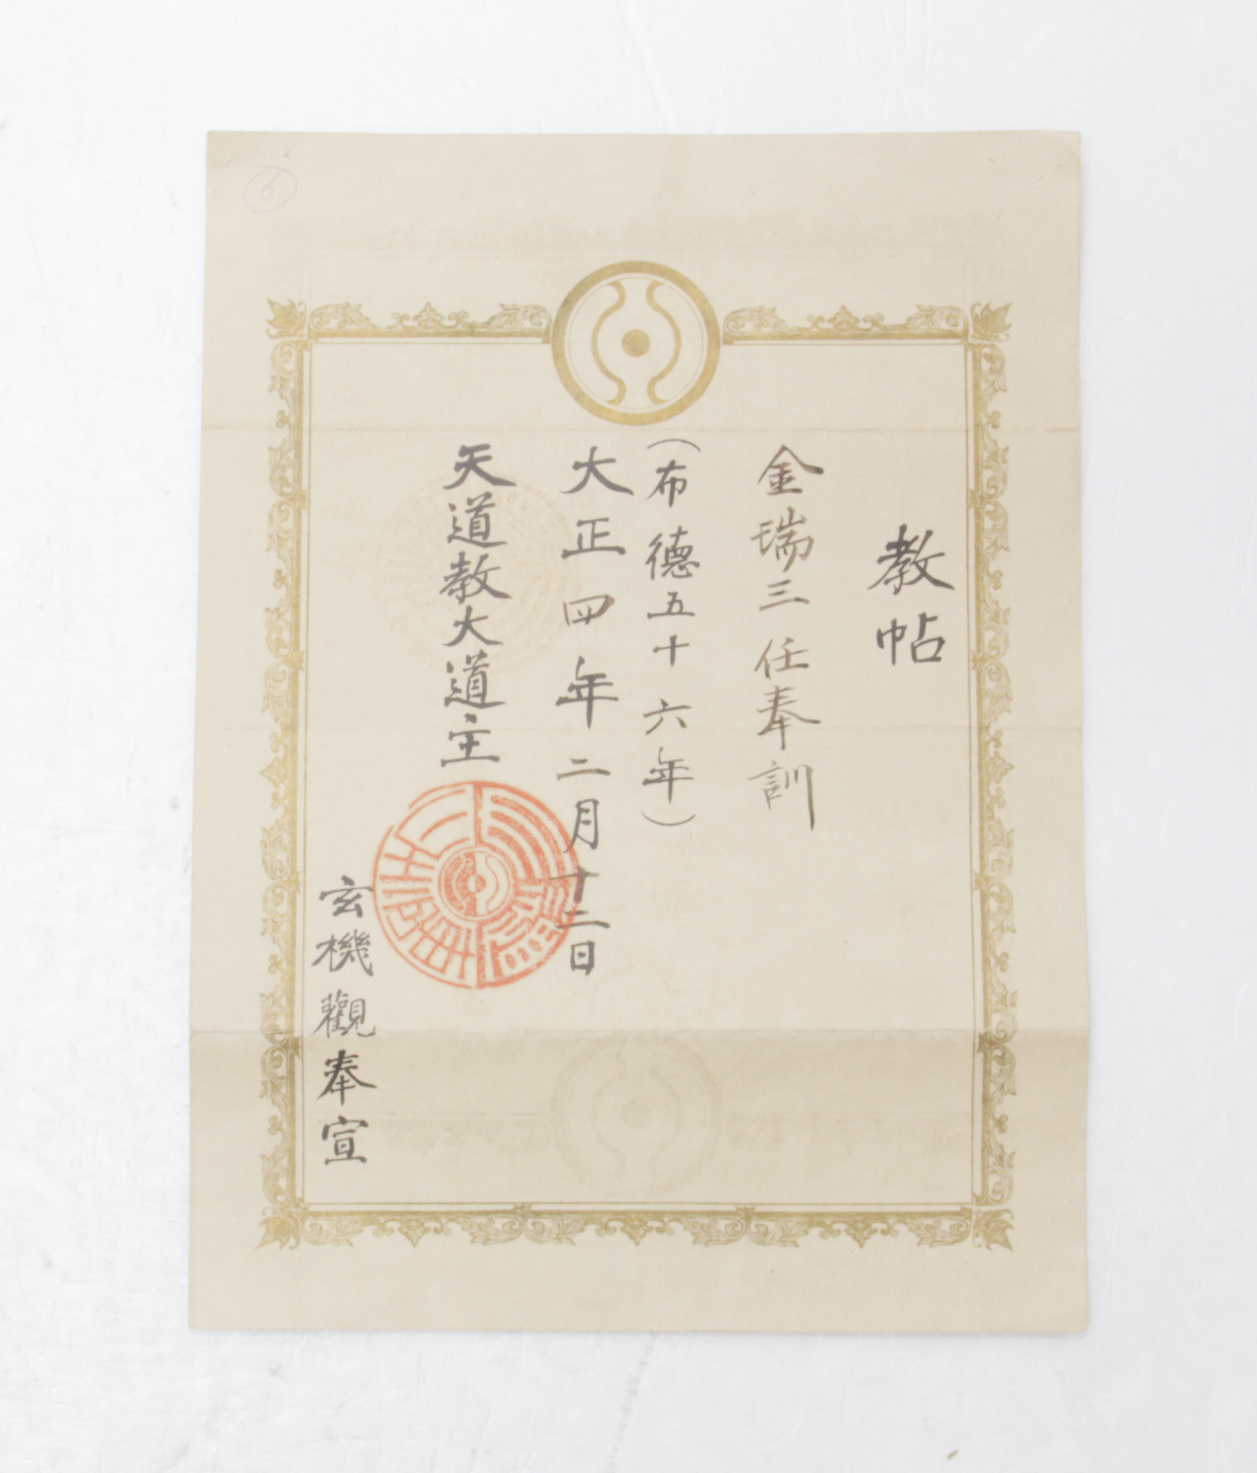 教帖
金瑞三 任奉訓
(布德五十六年)
大正四年二月十二日
天道教大道主
玄機觀奉宣
6